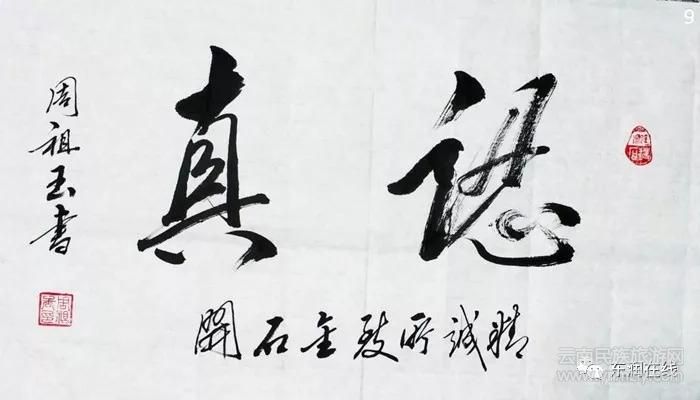 9
認真
精誠所致金石開
周祖玉書
云南民族旅游网
东润在线